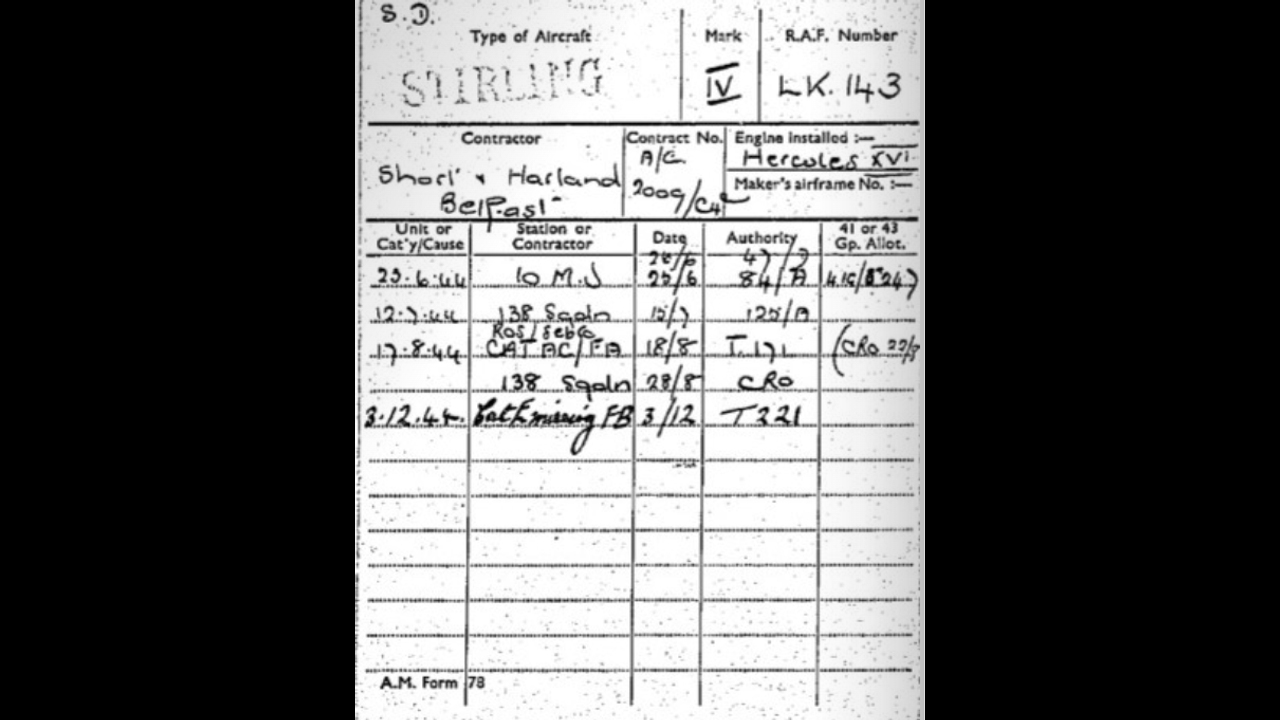 S.D.
Type of Aircraft Mark R.A.F. Number
STIRLING IV LK.143
Contractor Contract No. Engine installed :—
A/C Hercules XVI
Short & Harland Maker's airframe No. :—
Belfast 2009/C4
Unit or Station or Date Authority 41 or 43
Cat'y/Cause Contractor Gp. Allot.
26/6 47/7
23.6.44 10 M.U 25/6 84/A
12.7.44 138 Sqdn 15/7 125/A
Ros/Sebro
17.8.44 CAT AC/FA 18/8 T.171 (CRO 22/8
138 Sqdn 28/8 CRO
3.12.44. Cat E missing FB 3/12 T221
A.M. Form 78